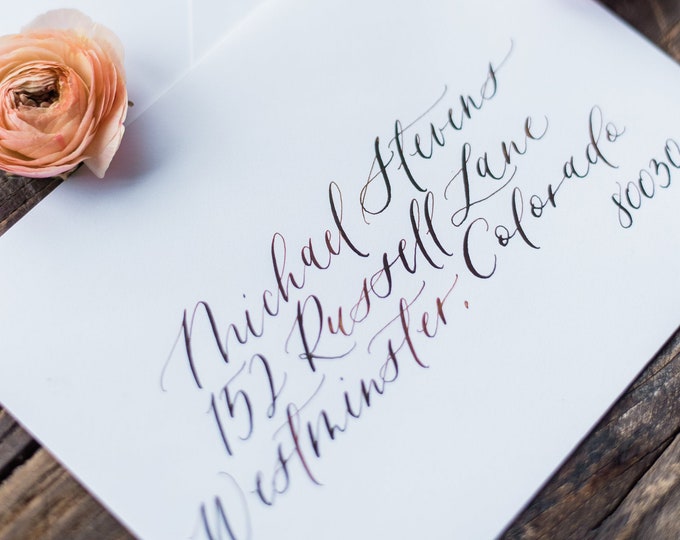 Michael Stevens
152 Russell Lane
Westminster, Colorado
80030